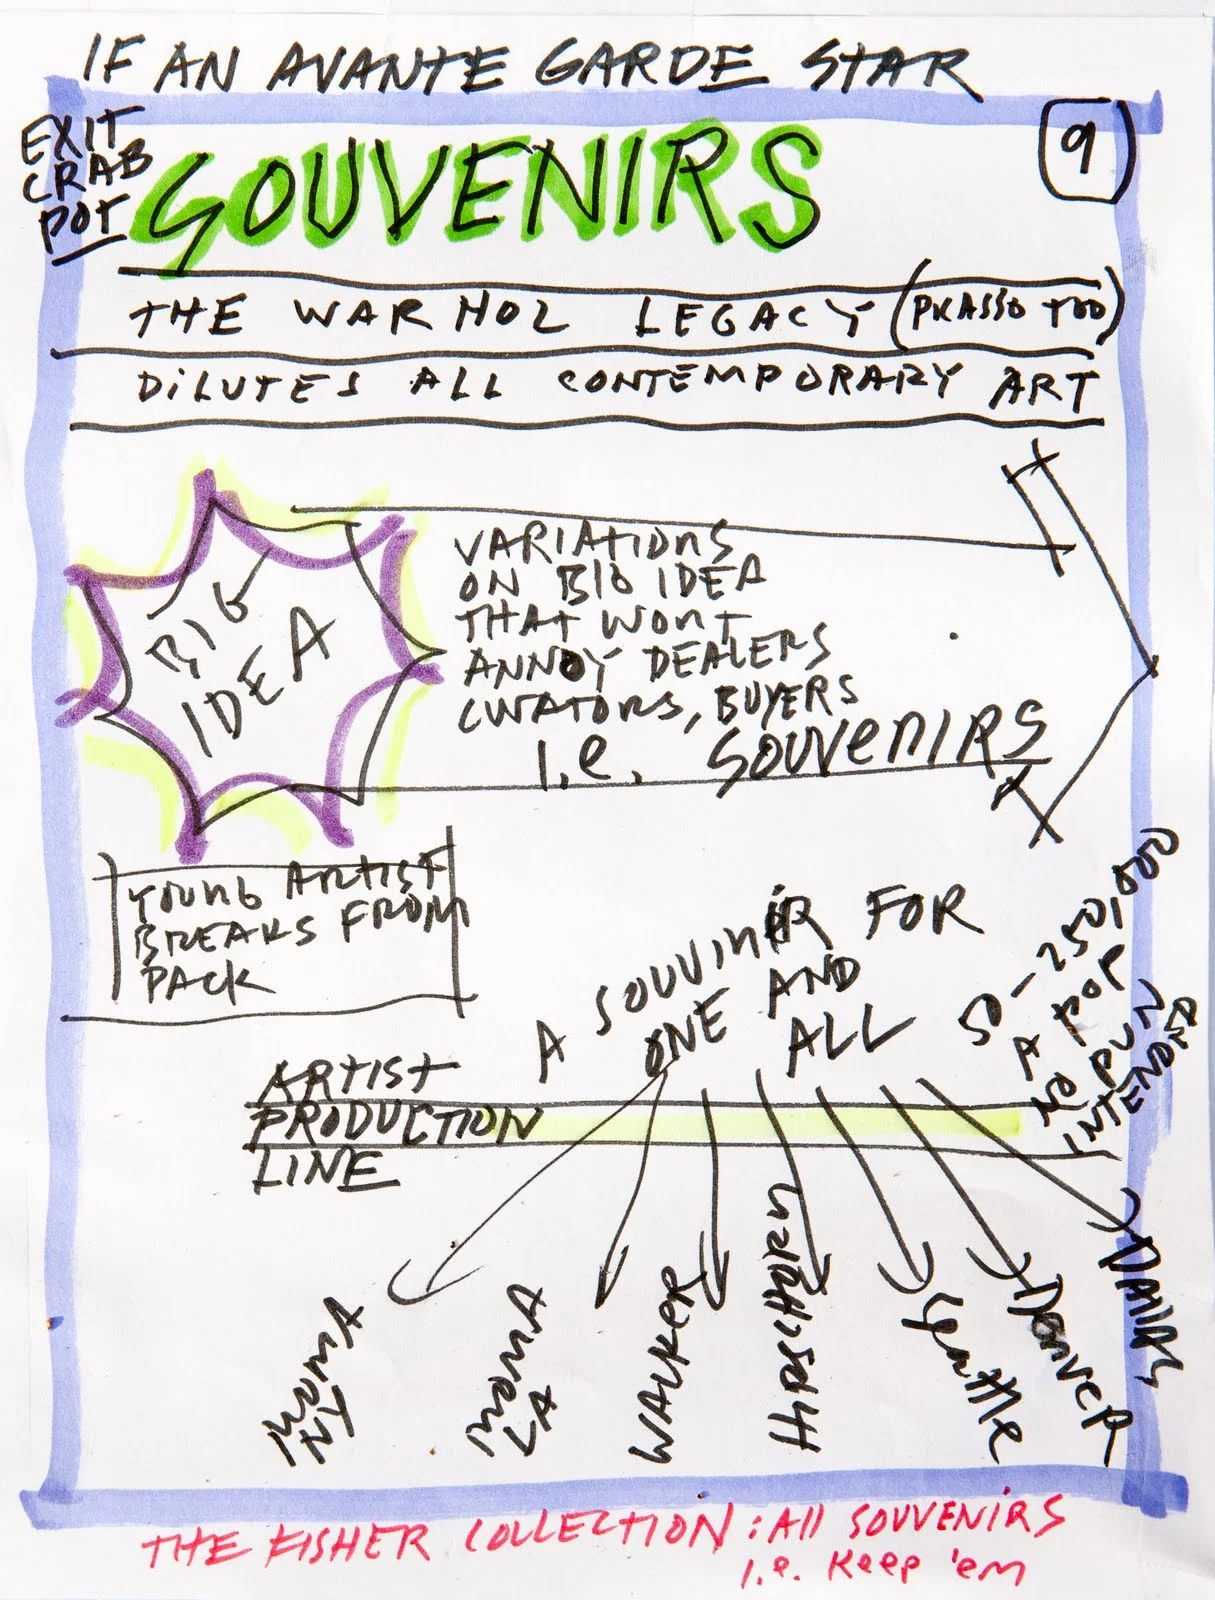 IF AN AVANTE GARDE STAR
EXIT
CRAB
POT
9
SOUVENIRS
THE WARHOL LEGACY (PICASSO TOO)
DILUTES ALL CONTEMPORARY ART
BIG
IDEA
VARIATIONS
ON BIG IDEA
THAT WONT
ANNOY DEALERS
CURATORS, BUYERS
i.e. SOUVENIRS
YOUNG ARTIST
BREAKS FROM
PACK
A SOUVINIR FOR
ONE AND
ALL
50-250,000
A POP
ARTIST
PRODUCTION
LINE
MOMA
NY
MOMA
LA
WALKER
HIRSCHHORN
Seattle
Denver
Dallas
THE FISHER COLLECTION: All SOUVENIRS
i.e. Keep 'em